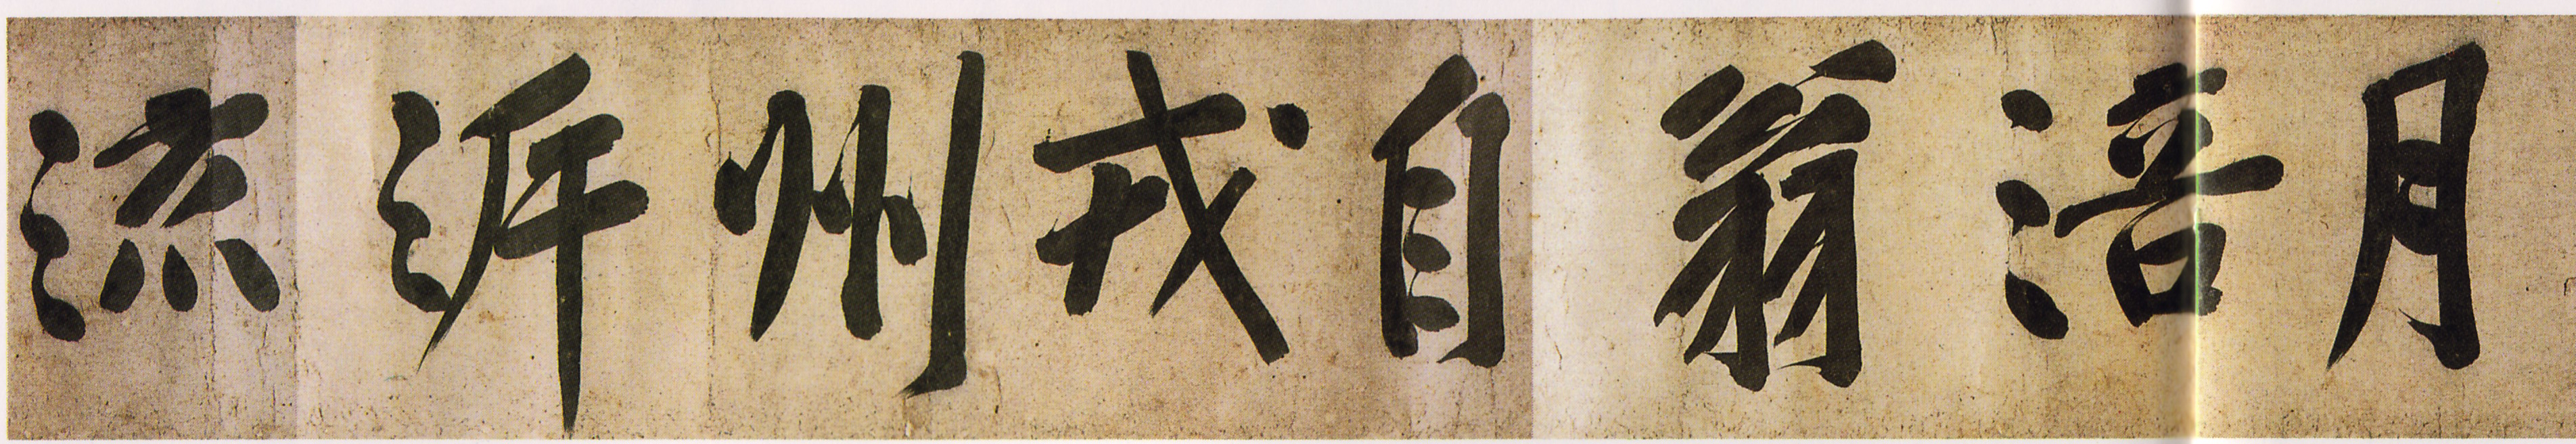 月涪翁自戎州泝流